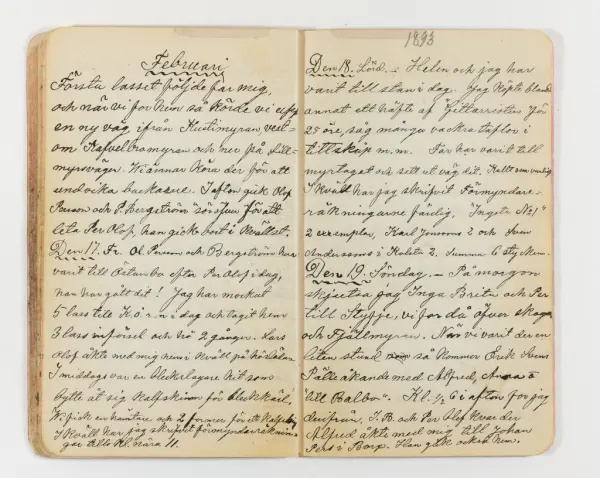 Februari
Första lasset följde far mig,
och när vi for hem så körde vi efter
en ny väg, ifrån Kustimyran, vest-
om Kafvelbromyran och ner på Lill-
myrvägen. Vi ämnar köra der för att
undvika backarne. I afton gick Olof
Persson och P. Bergström söröfver för att
leta Per Olof, han gick bort i kvällset.
Den 17. Fr. Ol Persson och Bergström har
varit till Östanbo efter Per Olof i dag,
han har gått dit! Jag har mockat
5 lass till K.ö.r.n i dag och tagit hem
3 lass införsel och hö 2 gånger. Lars
Olof åkte med mig hem i kväll på hölasset
I middags var en bleckslagare hit som
bytte åt sig kalfskinn för bleckkärl.
Vi fick en kanna och 2 formar för ett kalfskinn
I kväll har jag skrifvit förmyndareräknin-
gar tills kl. nära 11.
1893
Den 18. Lörd. - Helin och jag har
varit till stan i dag. Jag köpte bland
annat ett häfte af Gittarristen för
25 öre, såg många vackra taflor i
tittskåp m.m. Far har varit till
myrtaget och sett ut väg dit. Kallt som vanligt
I kväll har jag skrifvit Förmyndare-
räkningarne färdig, "Ingets No 1"
2 exemplar, Karl Jonsons 2 och Sven
Anderssons i Kolsta 2. Summa 6 sty hem.
Den 19. Söndag. - På morgon
skjutsa jag Inga Brita och Per
till Styfje, vi for då öfver skogen
och Fjällmyran. När vi varit der en
liten stund så kommer Erik Svens
Pålle åkande med Alfred,
"till Balbo". Kl. ½ 6 i afton for jag
derifrån. I.B. och Per Olof kvar der
Alfred åkte med mig till Johan
Pers i Borg. Han gick också hem.